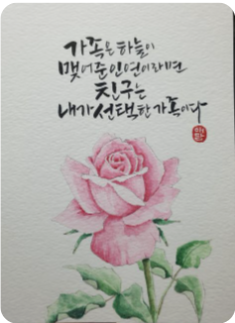 가족은 하늘이
맺어준 인연이라면
친구는
내가 선택한 가족이다